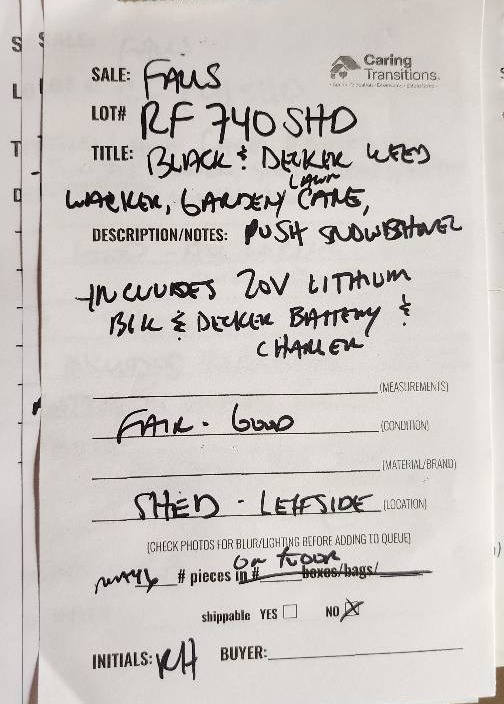 Caring
Transitions®
SALE: FALLS
LOT# RF 740 SHD
TITLE: BLACK & DECKER WEED
WACKER, GARDEN/ LAWN CARE,
DESCRIPTION/NOTES: PUSH SNOWSHOVEL
INCLUDES 20V LITHIUM
BLK & DECKER BATTERY &
CHARGER
(MEASUREMENTS)
FAIR - GOOD (CONDITION)
(MATERIAL/BRAND)
SHED - LEFTSIDE (LOCATION)
(CHECK PHOTOS FOR BLUR/LIGHTING BEFORE ADDING TO QUEUE)
ON FLOOR
MANY # pieces in # boxes/bags/
shippable YES NO
INITIALS: RH BUYER: